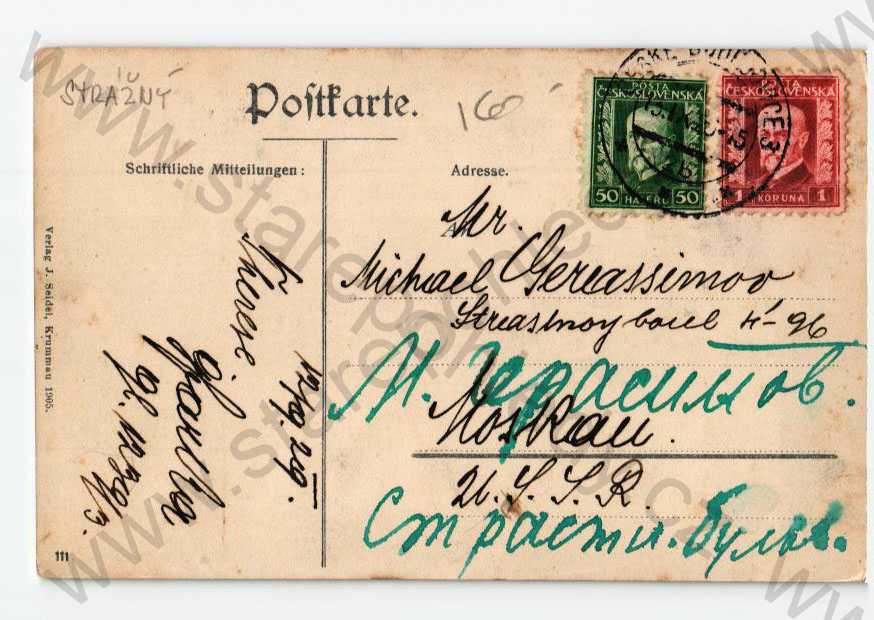 STRÁŽNÝ
Postkarte.
160
ČESKÉ BUDĚJOVICE 3
POŠTA
ČESKOSLOVENSKÁ
50 HALÉŘŮ 50
POŠTA
ČESKOSLOVENSKÁ
1 KORUNA 1
Schriftliche Mitteilungen:
Adresse.
Mr.
Michael Gerassimov
Strastnoy boul 4-96
М. Герасимов.
Moskau.
U.S.S.R
Страстн. бульв.
Verlag J. Seidel, Krummau 1905.
111
www.starepohlednice.cz